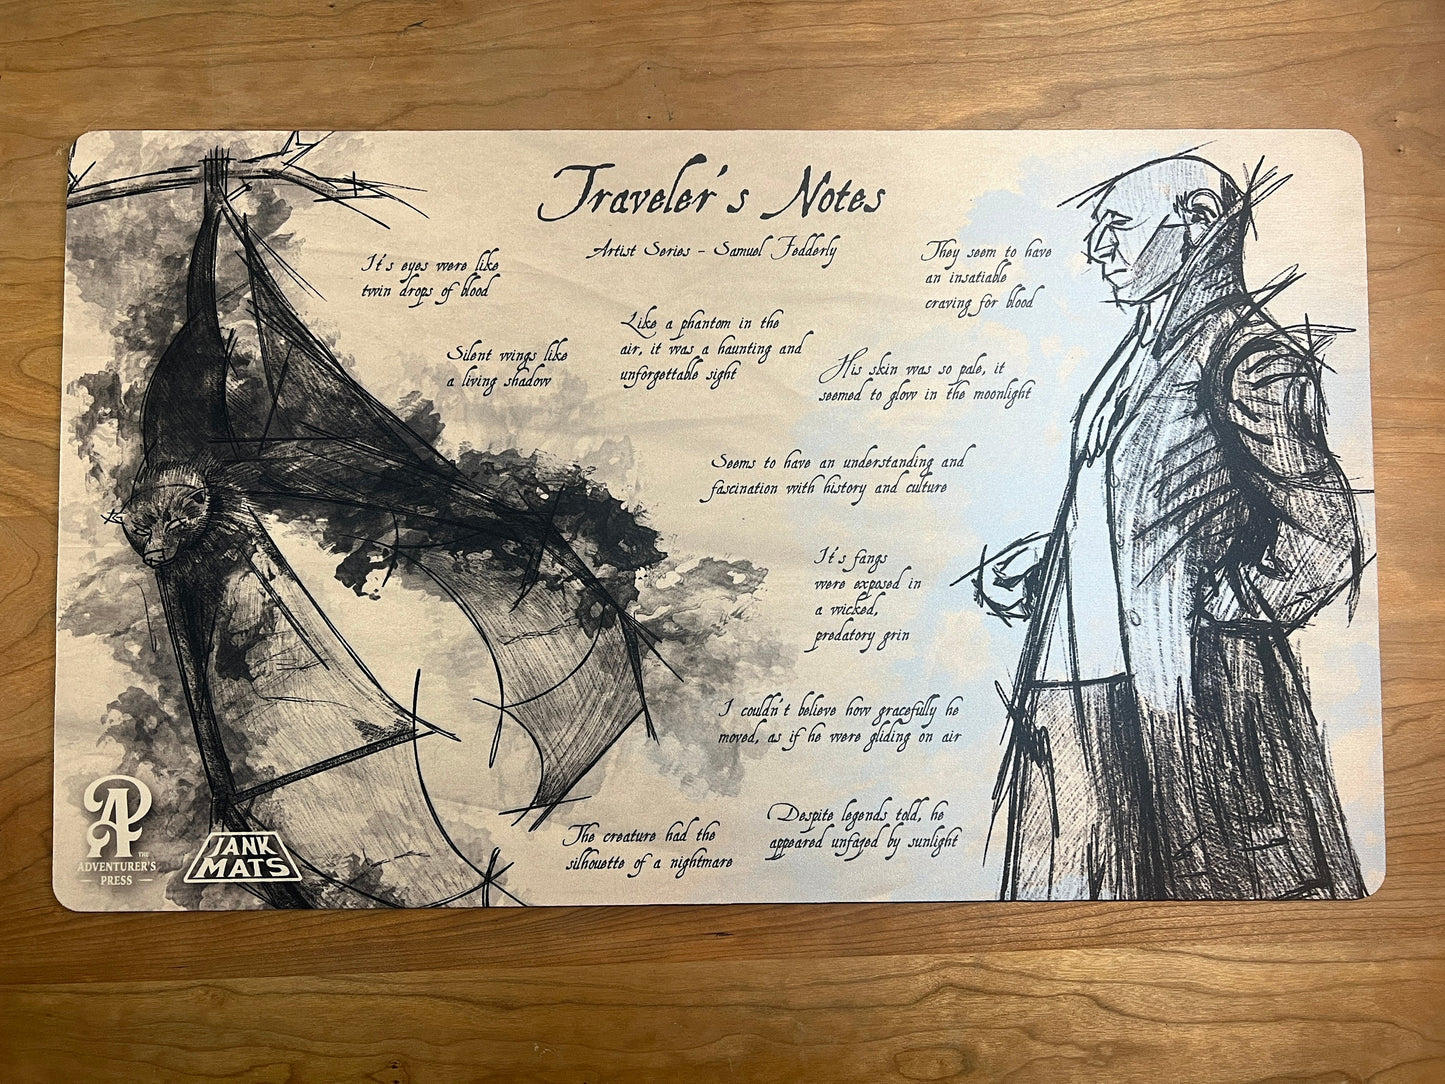 Traveler's Notes
Artist Series - Samuel Fedderly
It's eyes were like
twin drops of blood
They seem to have
an insatiable
craving for blood
Like a phantom in the
air, it was a haunting and
unforgettable sight
Silent wings like
a living shadow
His skin was so pale, it
seemed to glow in the moonlight
Seems to have an understanding and
fascination with history and culture
It's fangs
were exposed in
a wicked,
predatory grin
I couldn't believe how gracefully he
moved, as if he were gliding on air
Despite legends told, he
appeared unfazed by sunlight
The creature had the
silhouette of a nightmare
A
THE
ADVENTURER'S
PRESS
JANK
MATS